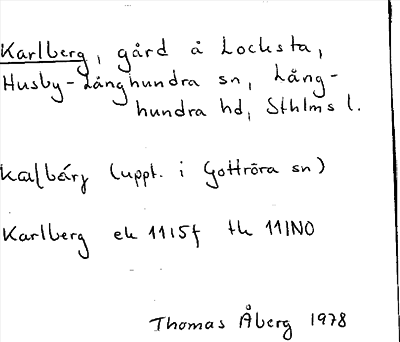 Karlberg, gård å Locksta,
Husby-Långhundra sn, Lång-
hundra hd, Sthlms l.
(uppt. i Gottröra sn)
Karlberg ek 11I5f tk 11INO
Thomas Åberg 1978